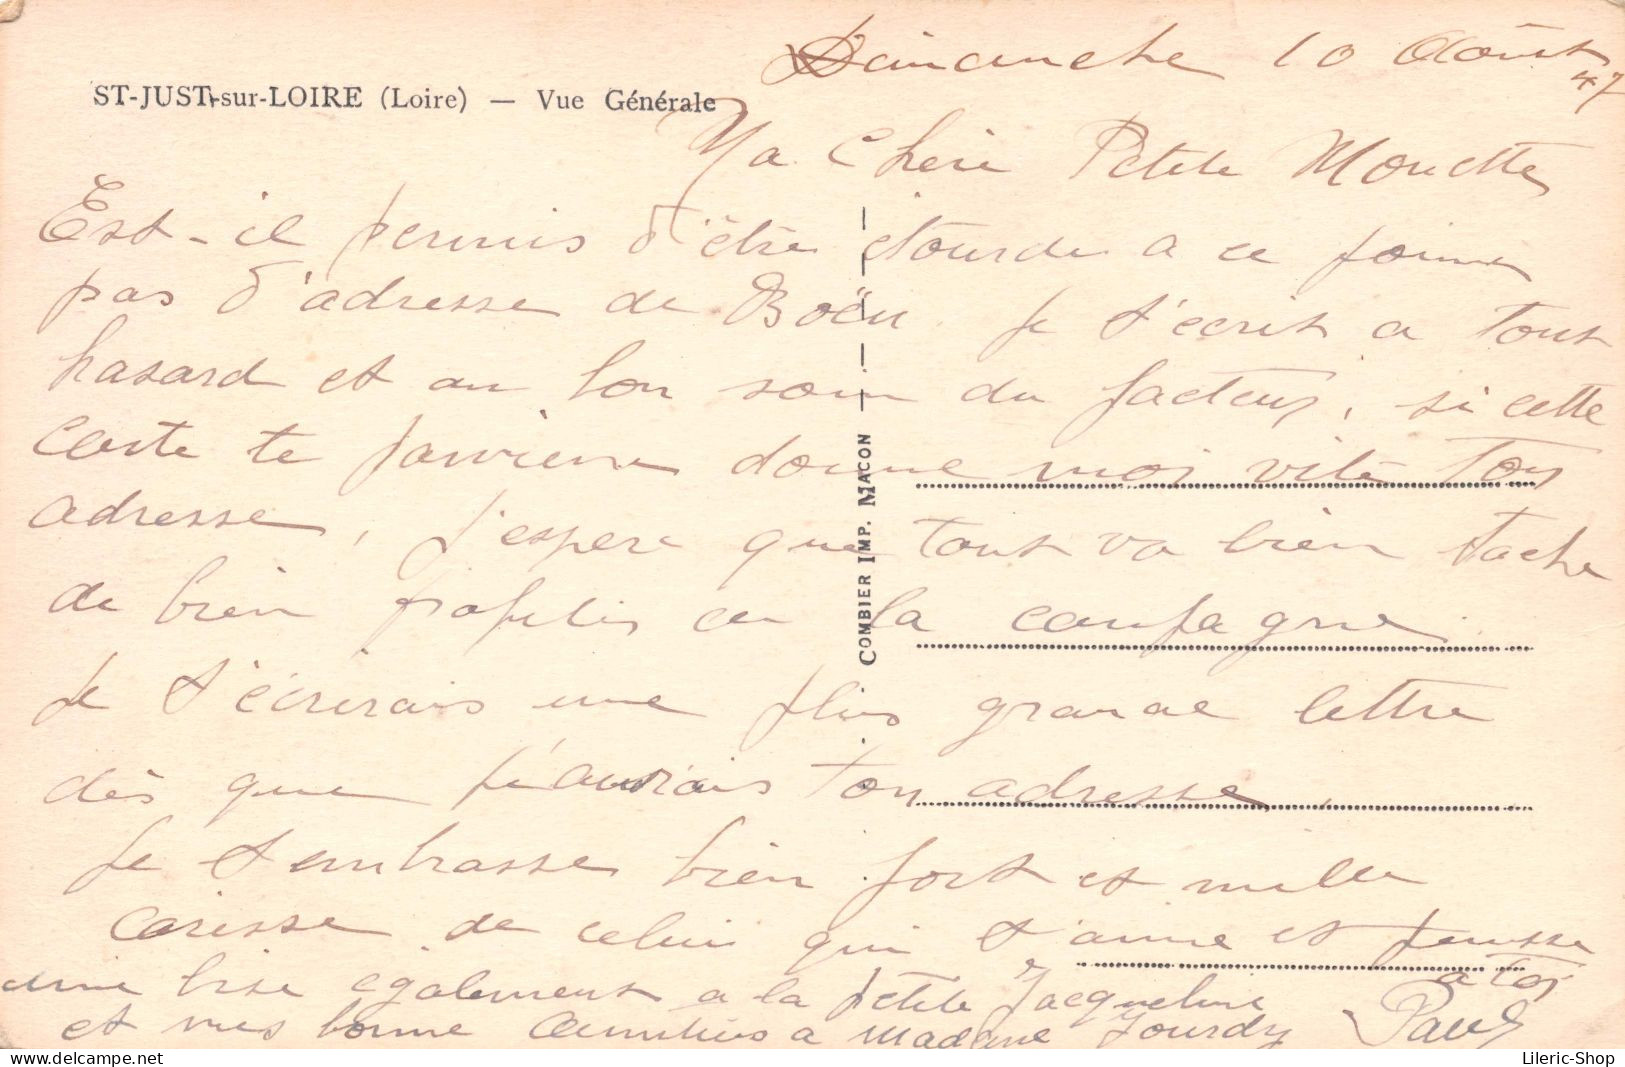 Dimanche 10 Août
47
ST-JUST-sur-LOIRE (Loire) — Vue Générale
Ma Chère Petite Mouette
Est-il permis d'être étourdi a ce point
pas d'adresse de Boën. Je t'écris a tout
hasard et au bon soin du facteur, si cette
carte te parvienne donne moi vite ton
adresse, j'espere que tout va bien tache
de bien profiter de la campagne
Je t'écrirais une plus grande lettre
dès que j'aurais ton adresse.
Je t'embrasse bien fort et mille
caresse de celui qui t'aime et pensse
a toi
une bise également a la petite Jacqueline
et mes bonne amitiés a Madame Jourdy Paul
COMBIER IMP. MACON
Lileric-Shop